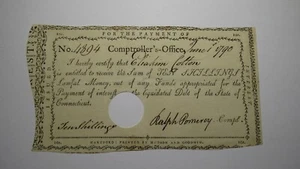 FOR THE PAYMENT OF
No. 4894 Comptroller's-Office, June 1 1790
I hereby certify that Eleazer
is entitled to receive the Sum of SHILLINGS
Lawful Money, out of any Funds appropriated for the
Payment of interest on the liquidated Debt of the State of
Connecticut.
Ten Shillings
Ralph Pomeroy Compt.
HARTFORD: PRINTED BY HUDSON AND GOODWIN.